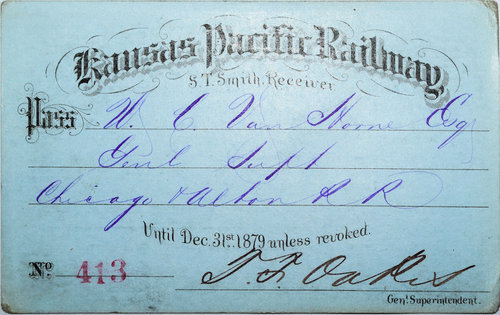 Kansas Pacific Railway
S. T. Smith, Receiver
Pass W. C. Van Horne Esq
Genl Supt
Chicago & Alton R R
Until Dec. 31st. 1879 unless revoked.
No 413 T. F. Oakes
Genl. Superintendent.